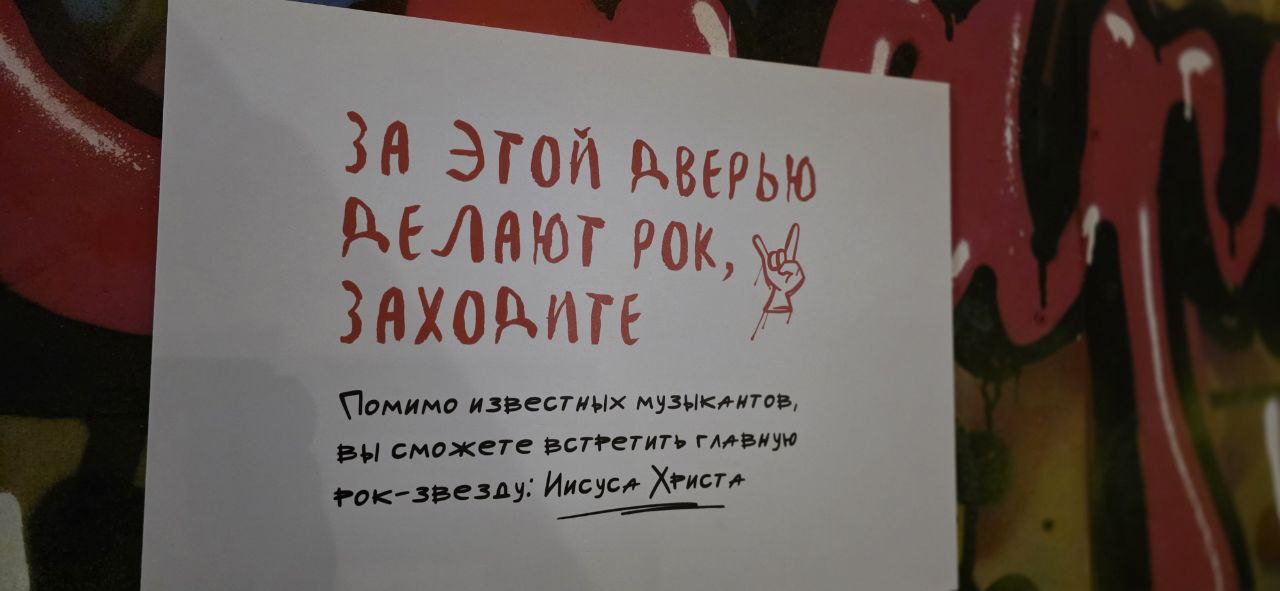 ЗА ЭТОЙ ДВЕРЬЮ
ДЕЛАЮТ РОК,
ЗАХОДИТЕ
Помимо известных музыкантов,
вы сможете встретить главную
рок-звезду: Иисуса Христа